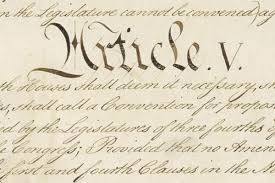 in the Legislature cannot be convened,) ag
Article. V.
h Houses shall deem it necessary, sh
s, shall call a Convention for propos
ed by the Legislatures of three fourths
e Congress; Provided that no Amen
e first and fourth Clauses in the